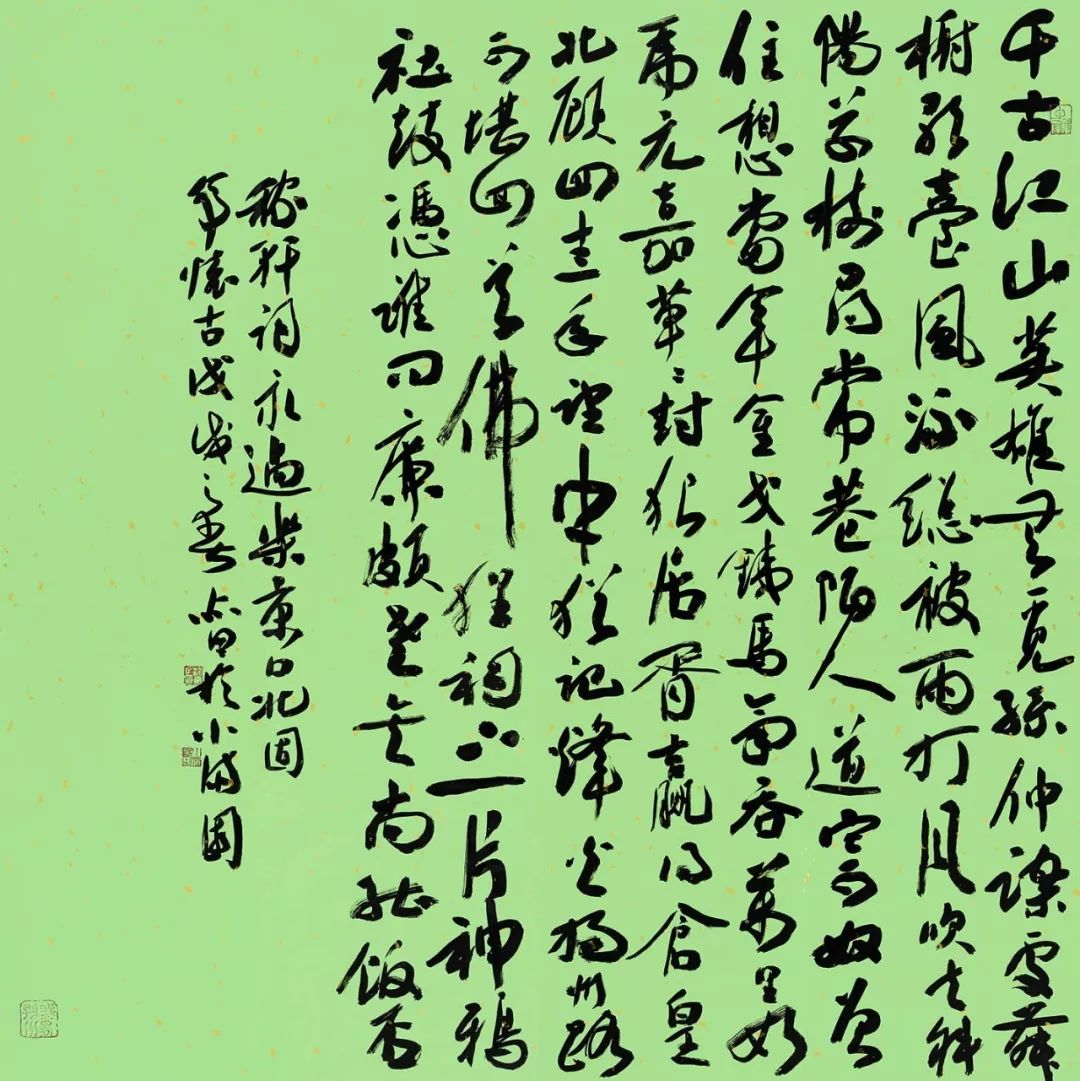 千古江山英雄无覓孫仲謀處舞
榭歌臺風流總被雨打風吹去斜
陽草樹尋常巷陌人道寄奴曾
住想當年金戈鐵馬氣吞萬里如
虎元嘉草〻封狼居胥贏得倉皇
北顧四十三年望中猶記烽火揚州路
可堪回首佛狸祠下一片神鴉
社鼓憑誰問廉頗老矣尚能飯否
稼軒詞永遇樂京口北固
亭懷古戊戌之春於小滿園